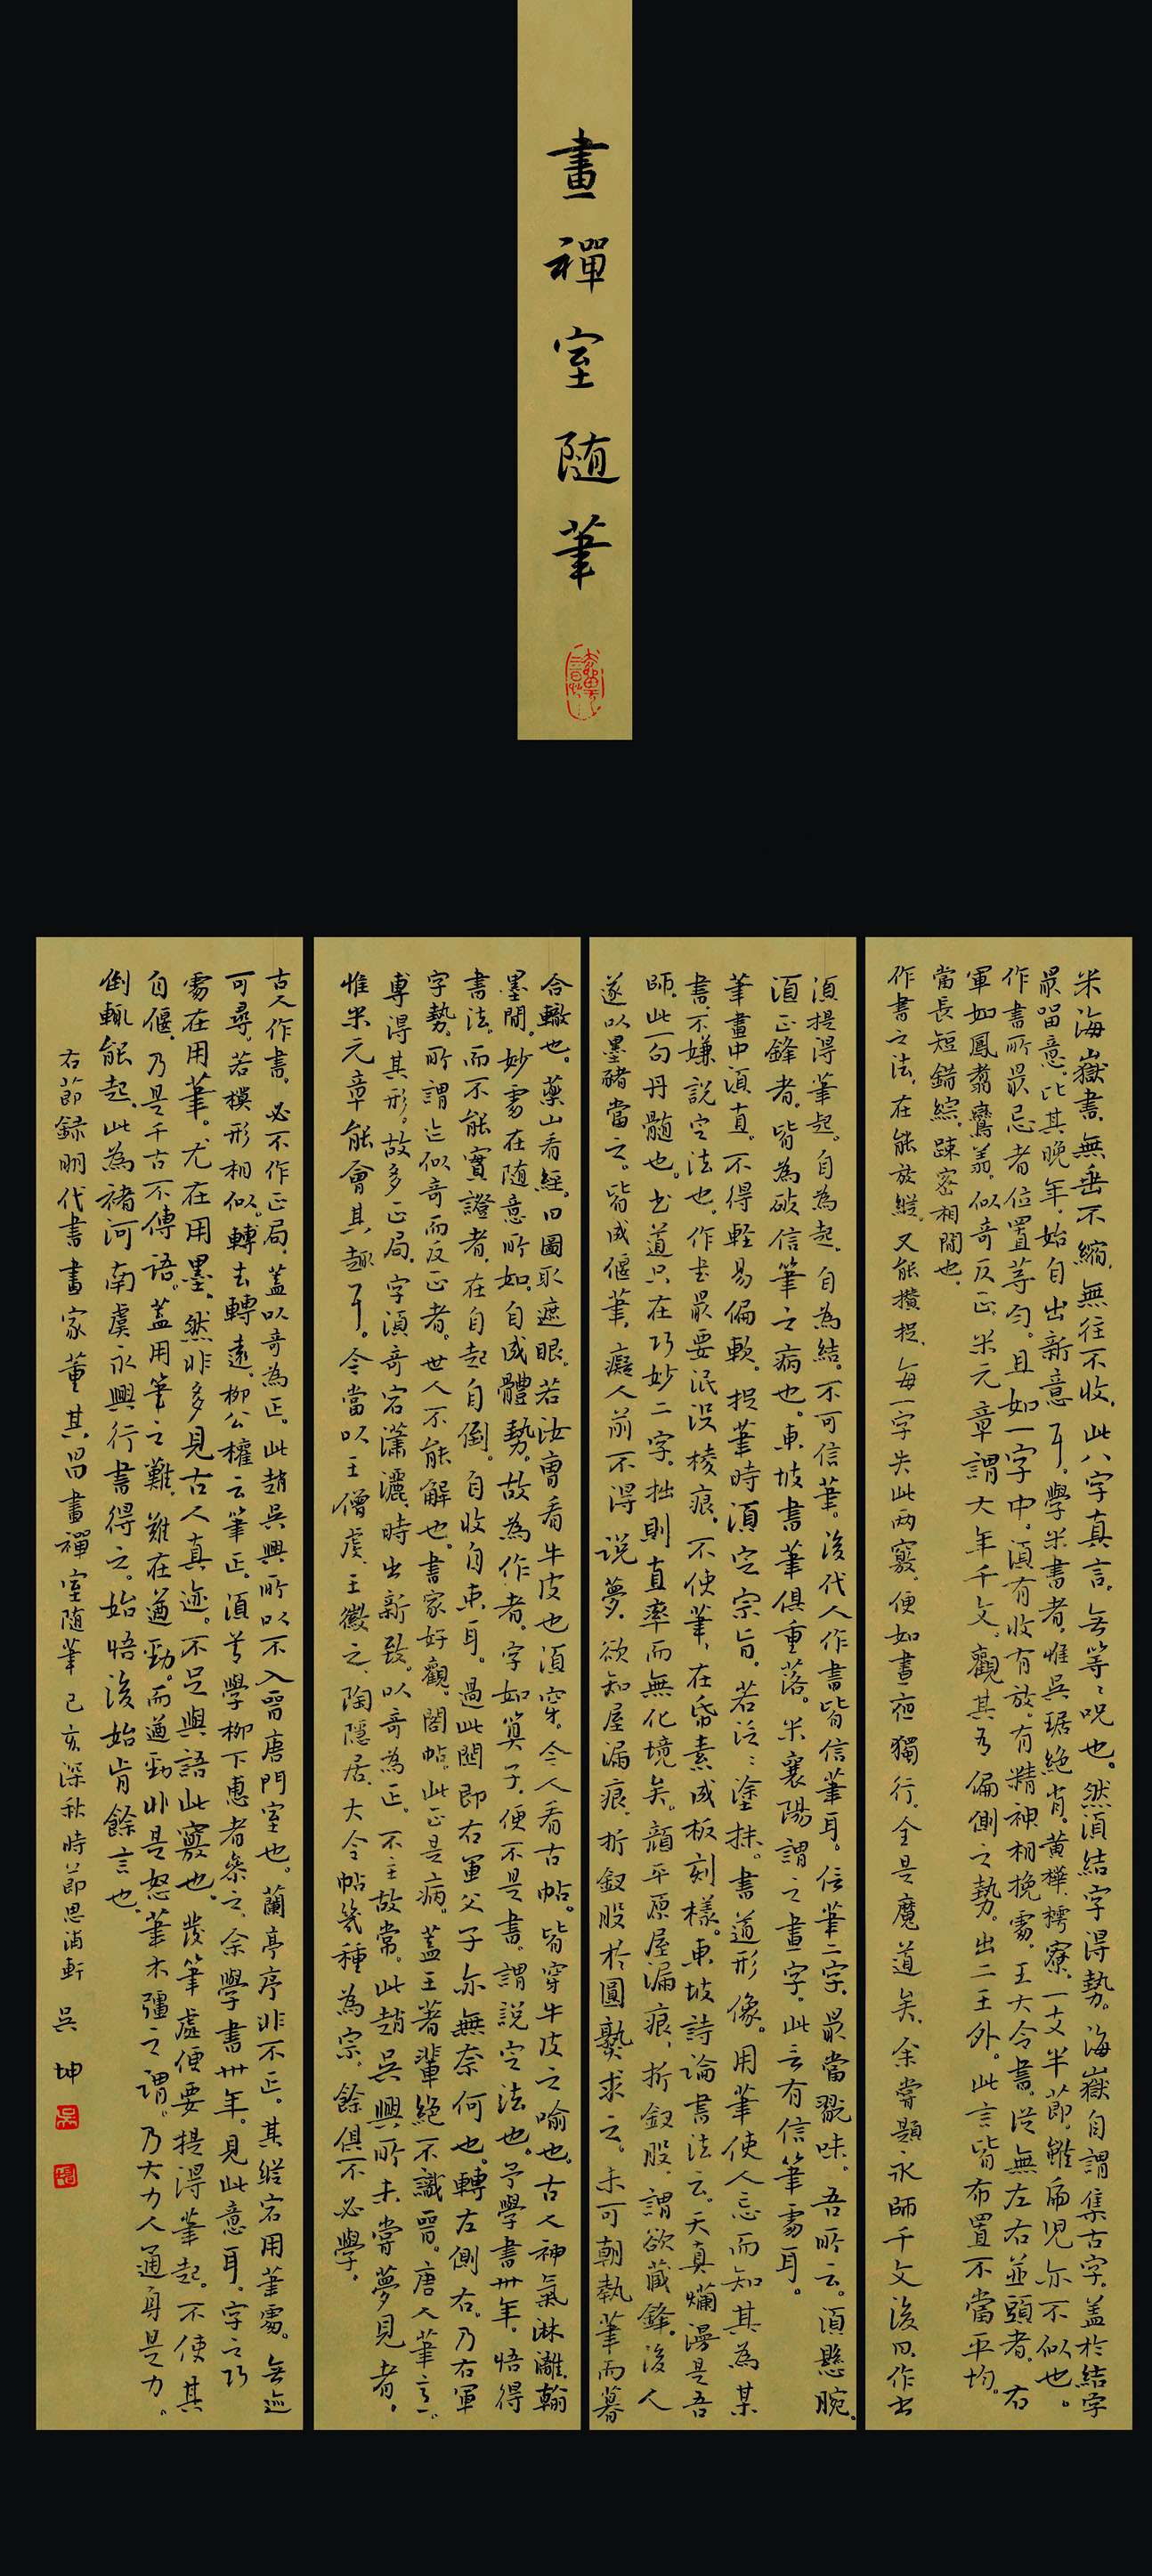 畫禪室隨筆
米海嶽書，無垂不縮，無往不收，此八字真言，無等等咒也。然須結字得勢。海嶽自謂集古字，蓋於結字
最留意。比其晚年，始自出新意耳。學米書者，惟吳琚絕肖。黃樺、樗寮，一支半節，雖虎兒亦不似也。
作書所最忌者位置等勻。且如一字中，須有收有放，有精神相挽處。王大令書，從無左右並頭者。右
軍如鳳翥鸞翥，似奇反正。米元章謂大年千文，觀其有偏側之勢，出二王外。此言皆布置不當平均。
當長短錯綜，疎密相間也。
作書之法，在能放縱，又能攢捉，每一字失此兩竅，便如晝夜獨行，全是魔道矣。余嘗題永師千文後曰，作書
須提得筆起，自為起，自為結，不可信筆。後代人作書皆信筆耳。信筆二字，最當翫味。吾所云，須懸腕，
須正鋒者，皆為破信筆之病也。東坡書筆俱重落，米襄陽謂之畫字，此言有信筆處耳。
筆畫中須直，不得輕易偏軟。捉筆時須定宗旨，若泛泛塗抹，書道形像。用筆使人忘而知其為某
書，不嫌說定法也。作書最要泯沒棱痕，不使筆，在帋素成板刻樣。東坡詩論書法云，天真爛漫是吾
師。此一句丹髓也。書道只在巧妙二字，拙則直率而無化境矣。顏平原屋漏痕，折釵股，謂欲藏鋒，後人
遂以墨豬當之。皆成偃筆，癡人前不得說夢，欲知屋漏痕，折釵股於圓熟求之。未可朝執筆而暮
合轍也。藥山看經，曰圖取遮眼，若汝曹看牛皮也須穿。今人看古帖，皆穿牛皮之喻也。古人神氣淋灕翰
墨間，妙處在隨意所如，自成體勢。故為作者，字如算子，便不是書，謂說定法也。予學書卅年，悟得
書法，而不能實證者，在自起自倒，自收自束耳。過此關即右軍父子亦無奈何也。轉左側右，乃右軍
字勢。所謂迹似奇而反正者，世人不能解也。書家好觀閣帖，此正是病。蓋王著輩絕不識晉唐人筆意，
專得其形，故多正局。字須奇宕瀟灑，時出新致，以奇為正，不主故常。此趙吳興所未嘗夢見者，
惟米元章能會其趣耳。今當以王僧虔、王徽之、陶隱居、大令帖幾種為宗，餘俱不必學。
古人作書，必不作正局，蓋以奇為正。此趙吳興所以不入晉唐門室也。蘭亭序非不正，其縱宕用筆處，無迹
可尋。若模形相似，轉去轉遠。柳公權云筆正，須善學柳下惠者參之，余學書卅年，見此意耳。字之巧
處在用筆。尤在用墨，然非多見古人真迹，不足與語此竅也。發筆處便要提得筆起，不使其
自偃，乃是千古不傳語。蓋用筆之難，難在遒勁。而遒勁非是怒筆木彊之謂，乃大力人通身是力，
倒輒能起，此為褚河南虞永興行書得之，始悟後始肯餘言也。
右節錄明代書畫家董其昌畫禪室隨筆 己亥深秋時節思浦軒 吳坤